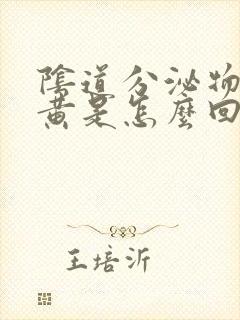 陰道分泌物
黃是怎麼回
王培沂